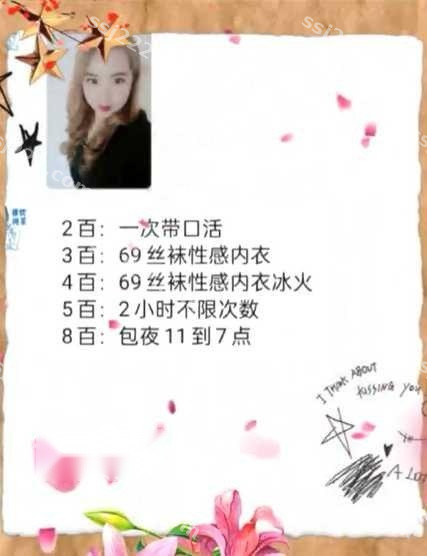 2百：一次带口活
3百：69丝袜性感内衣
4百：69丝袜性感内衣冰火
5百：2小时不限次数
8百：包夜11到7点
I THINK ABOUT
KISSING YOU
A LOT